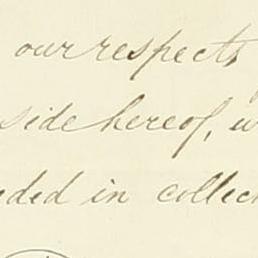 our respects
side hereof,
ded in collec